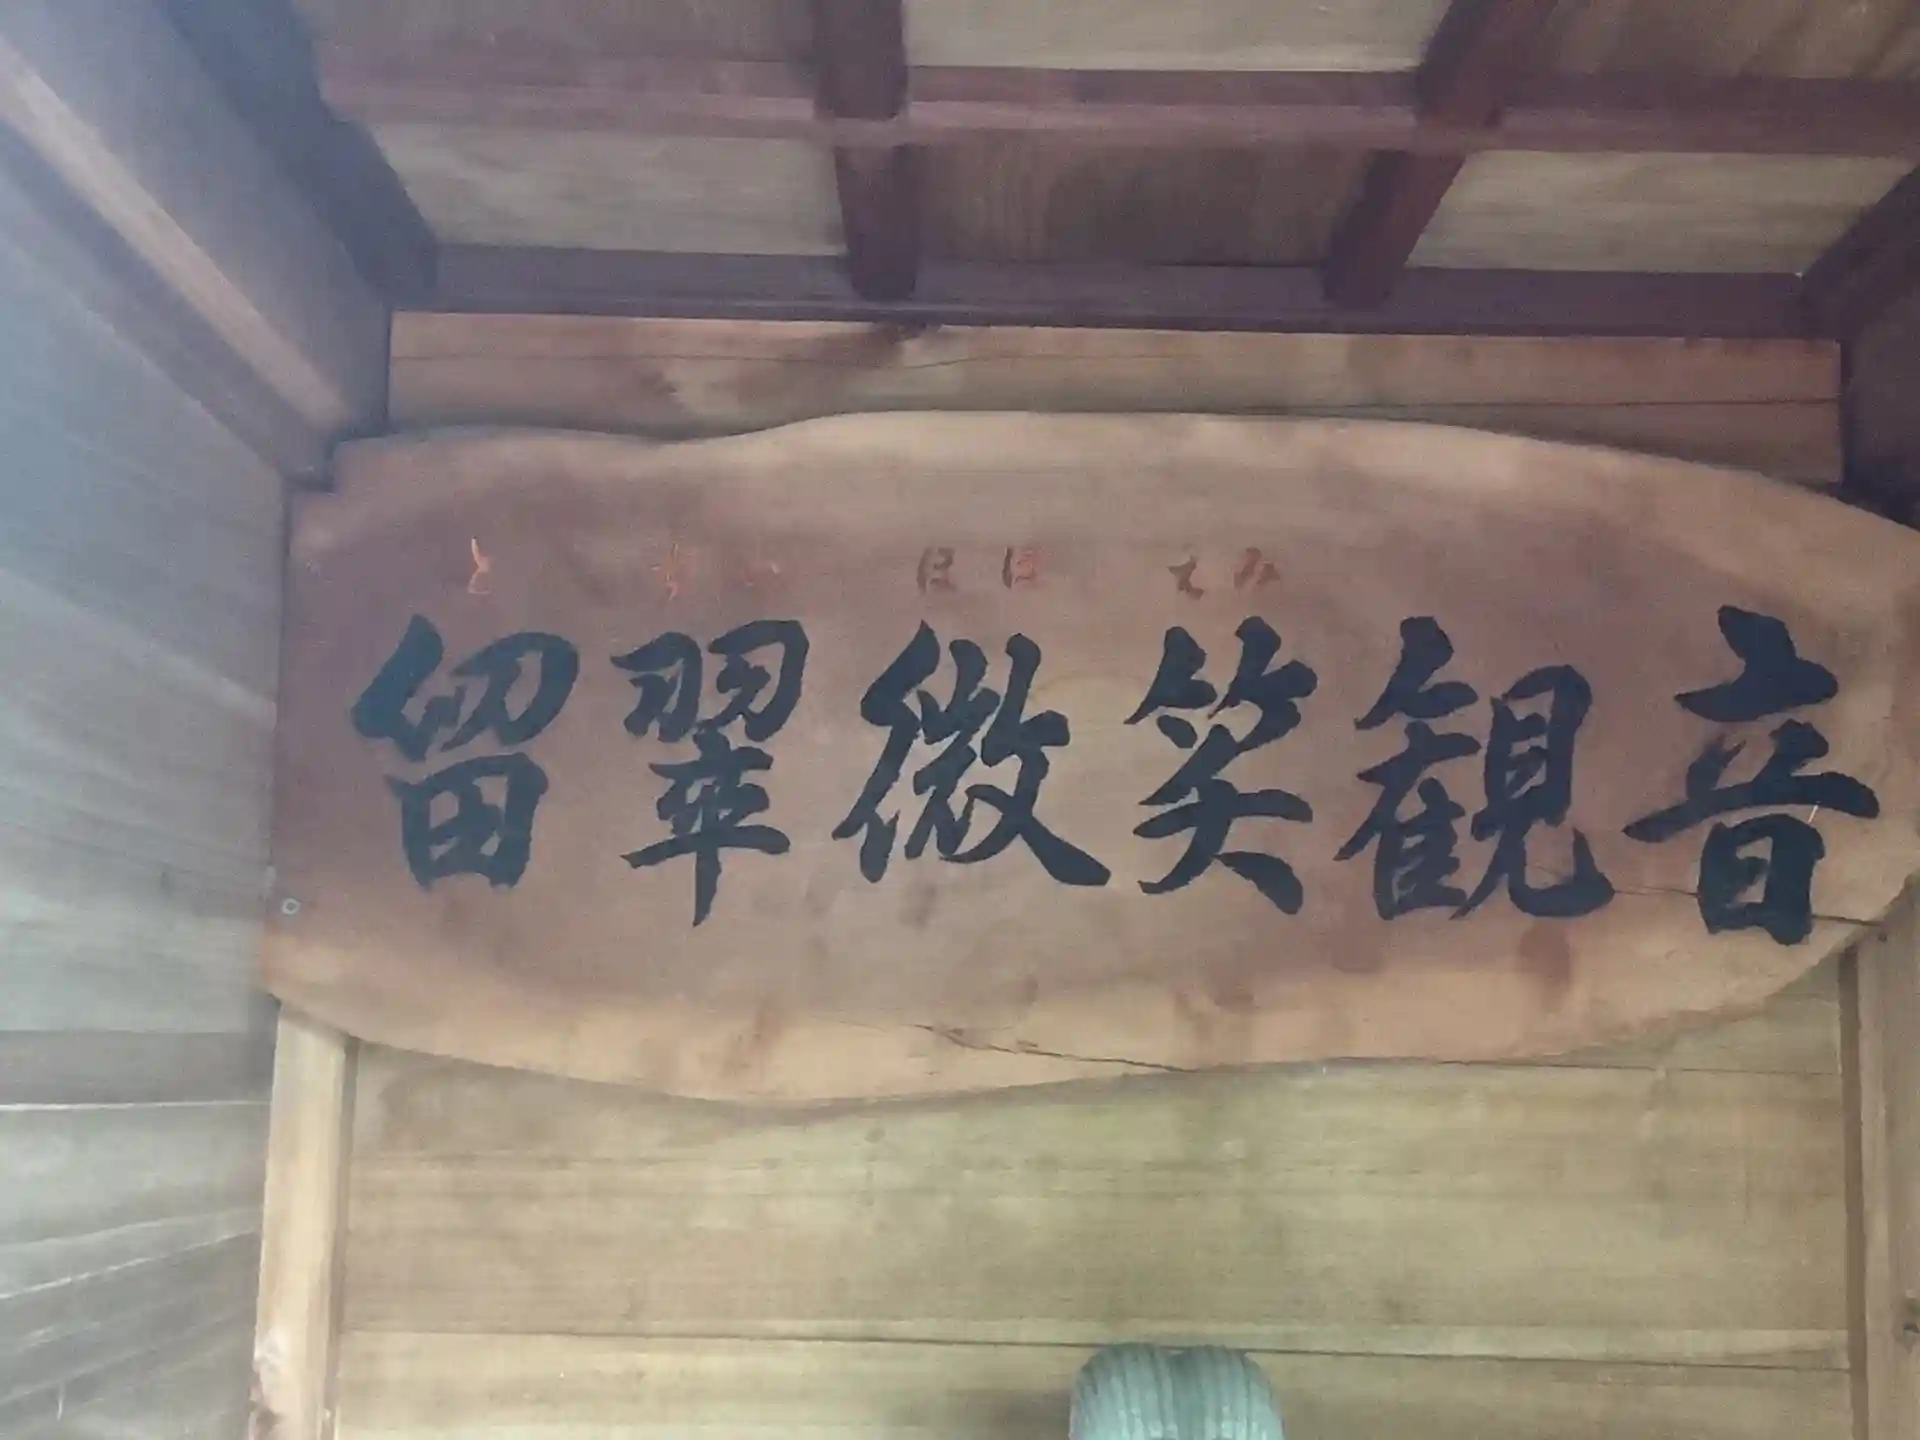 と すい ほほ えみ
留翠微笑観音